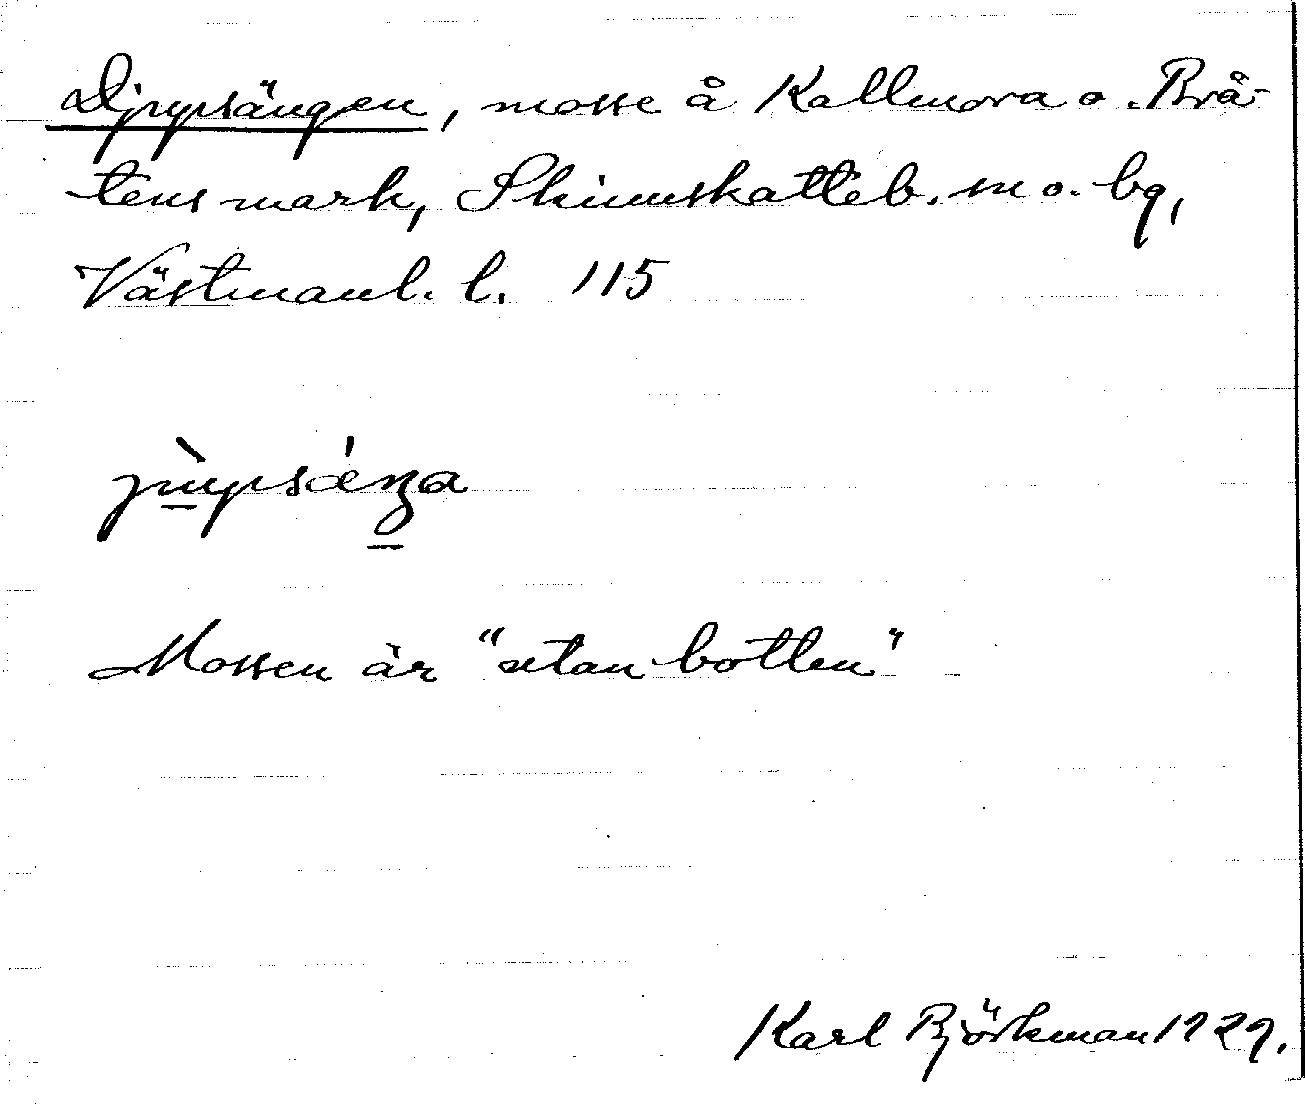 Djupsängen, mosse å Kallmora o. Brå-
tens mark, Skinnskatteb. sn o. bg,
Västmanl. l. 115
jùpsǽŋa
Mossen är "utan botten"
Karl Björkman 1929.